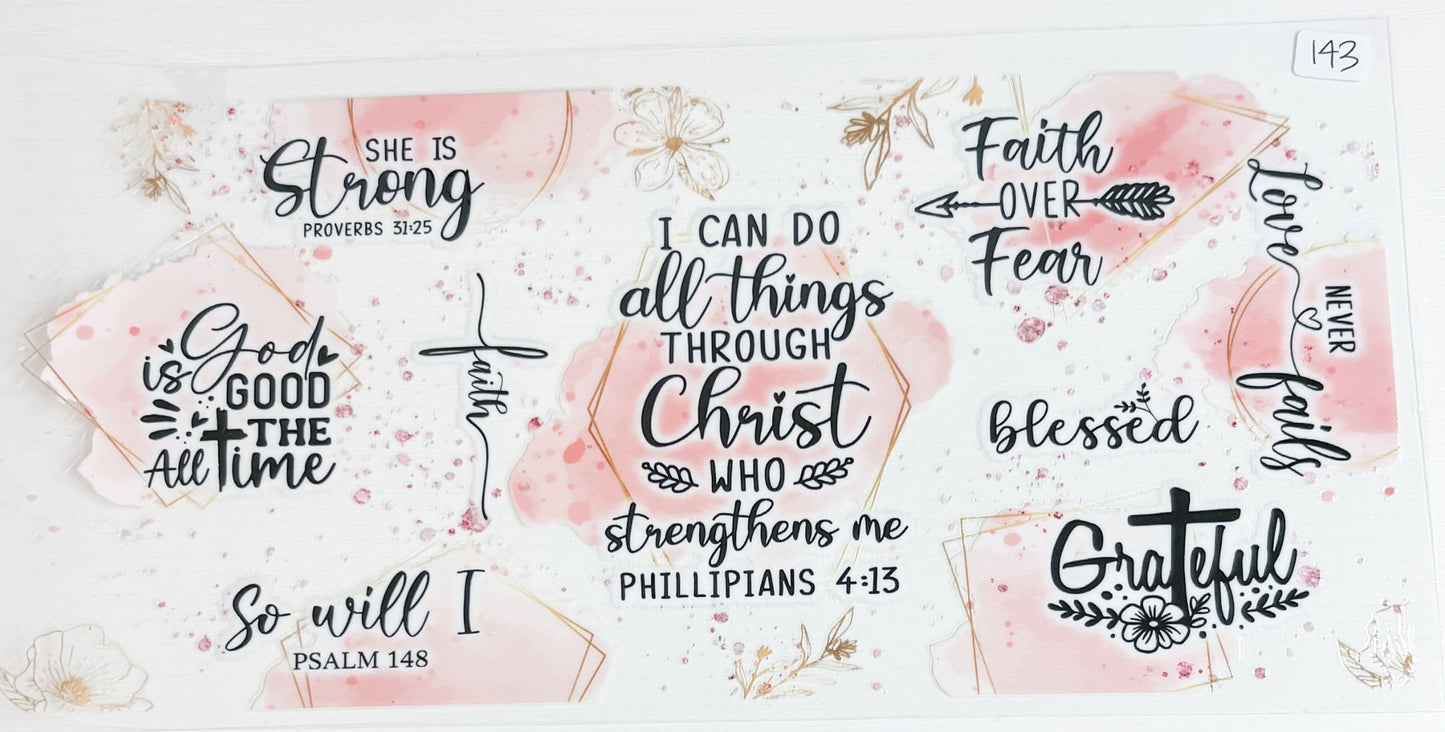 143
SHE IS
Strong
PROVERBS 31:25
God
is GOOD
THE
All time
faith
So will I
PSALM 148
I CAN DO
all things
THROUGH
Christ
WHO
strengthens me
PHILLIPIANS 4:13
Faith
OVER
Fear
Love
NEVER
fails
blessed
Grateful